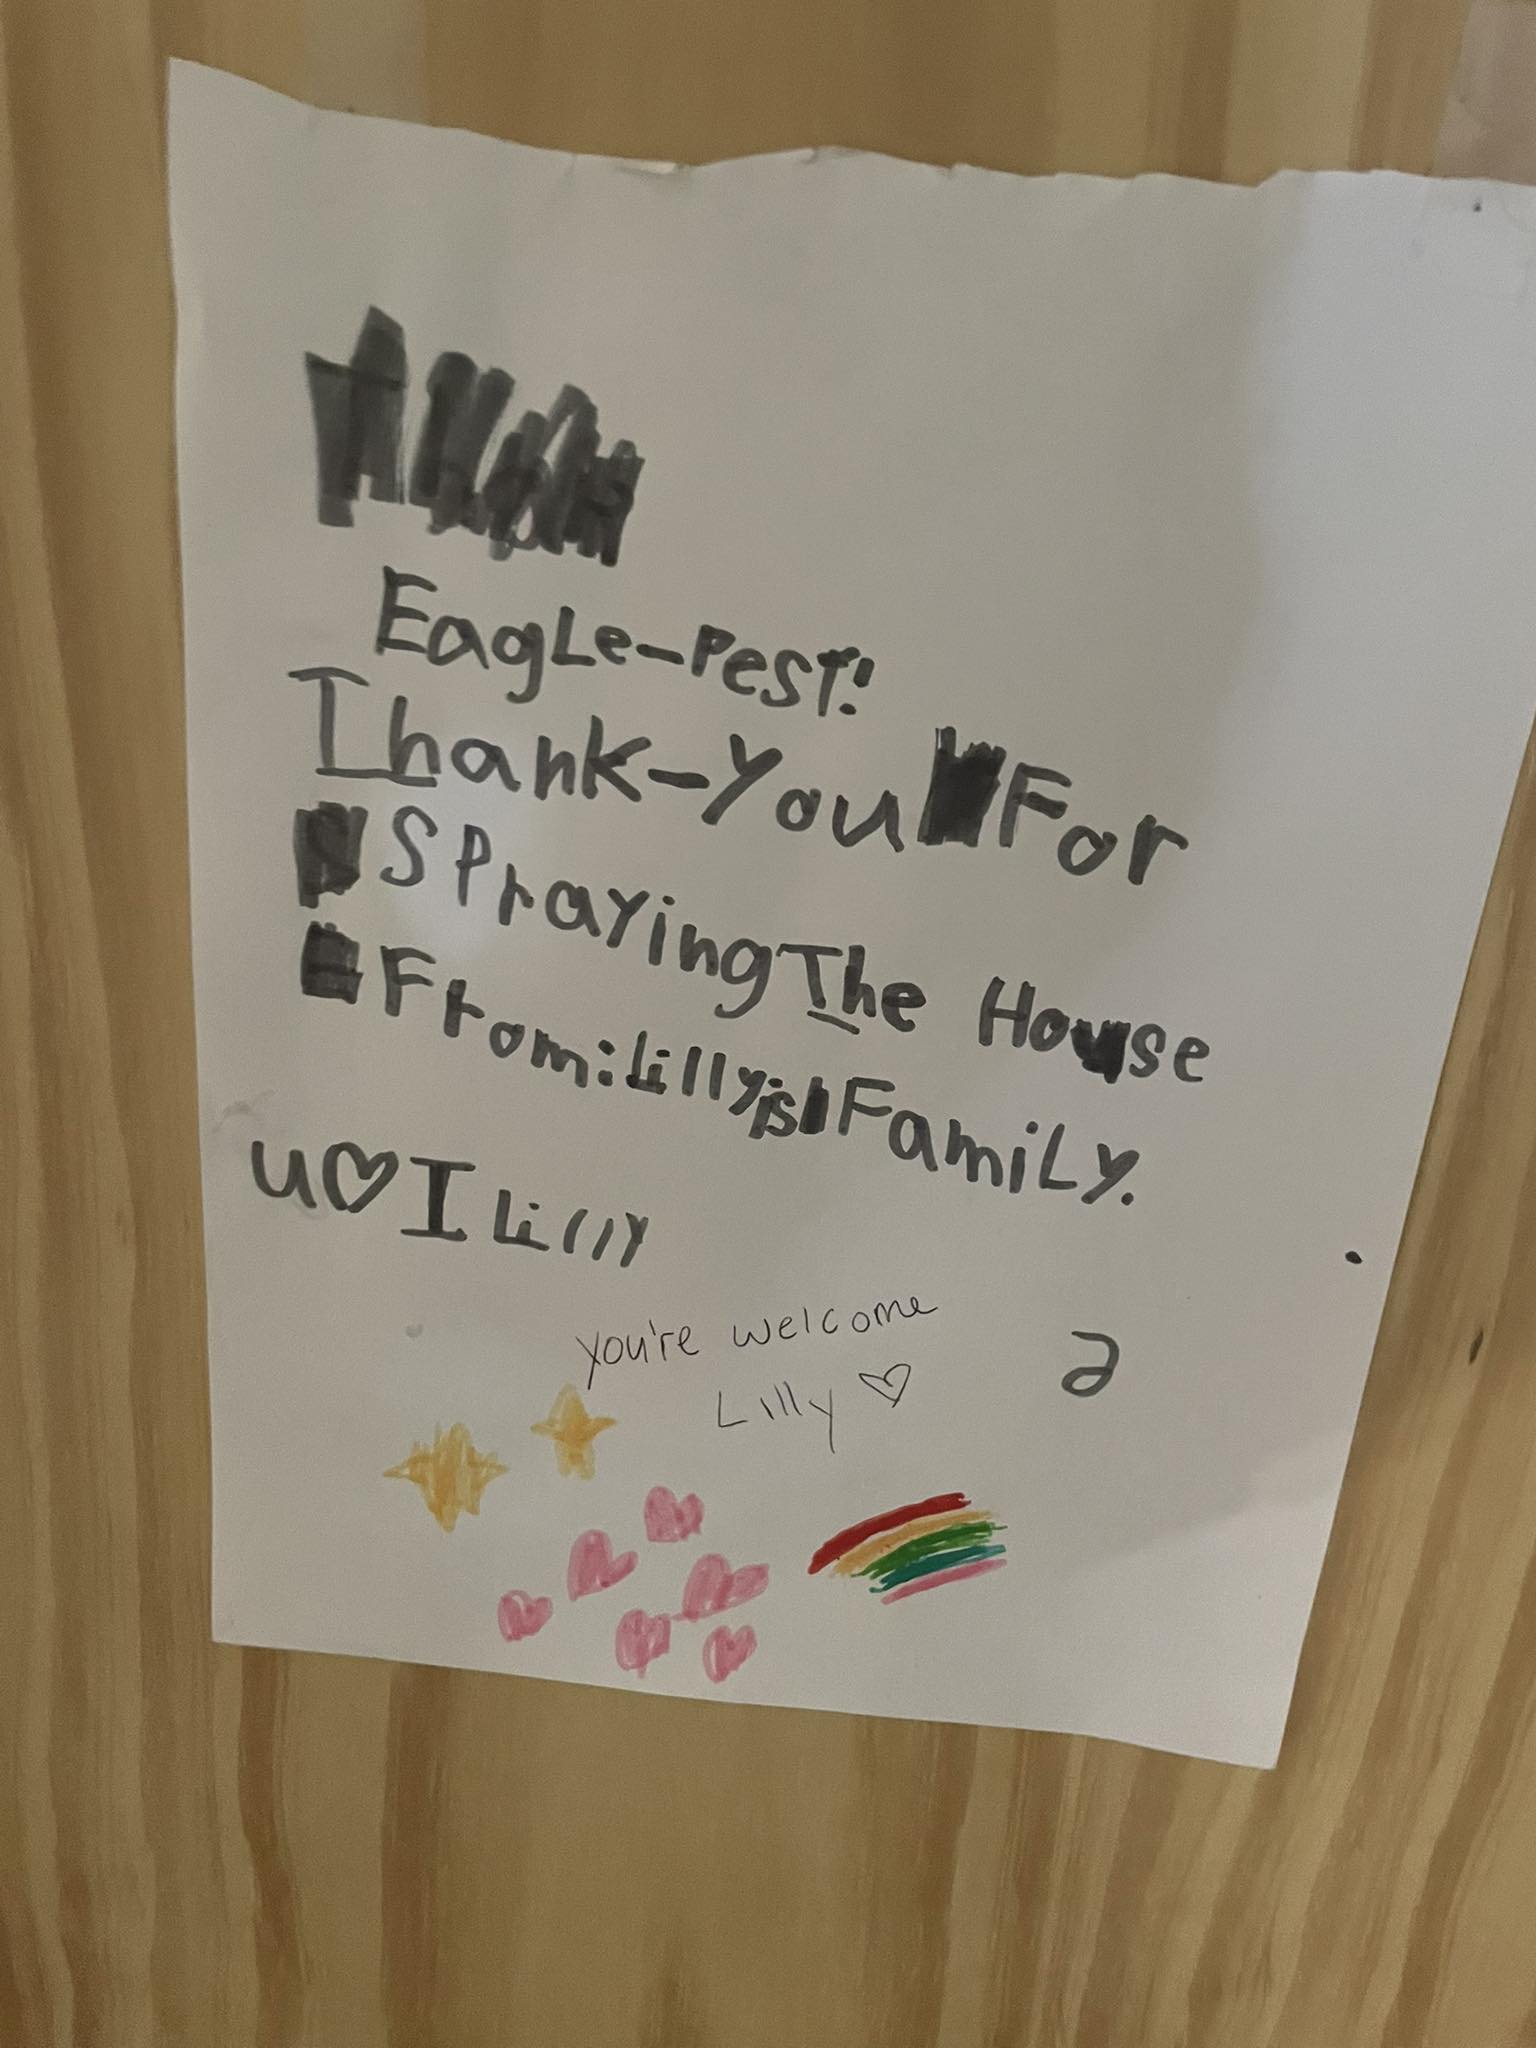 Eagle-Pest!
Thank-You For
Spraying The House
From: Lilly's Family.
u♡I Lilly
you're welcome
Lilly ♡
2